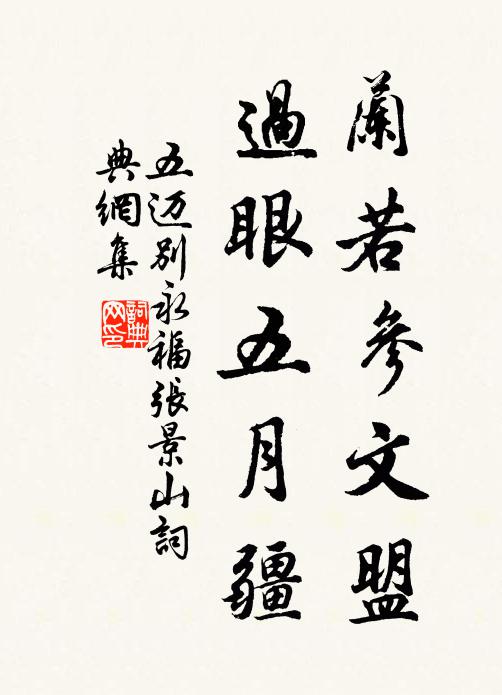 蘭若參文盟
過眼五月疆
五迈别永福張景山詞
典網集
詞典
网印